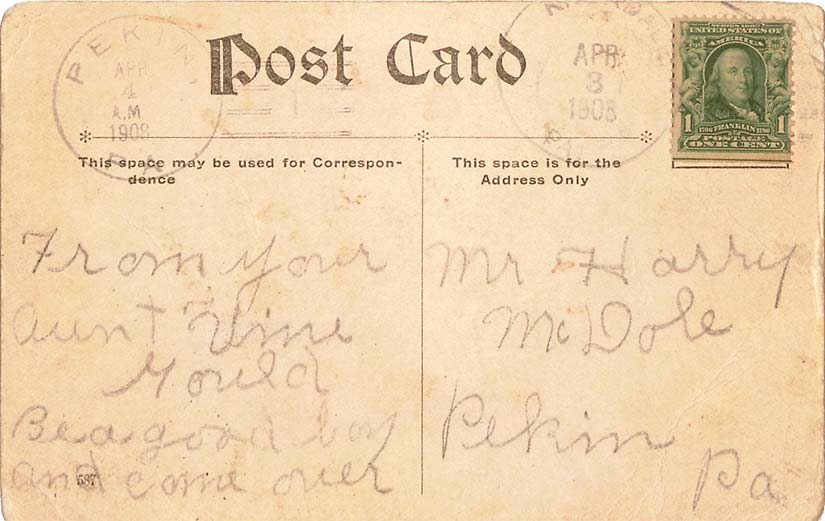 PEKIN
APR
4
A.M
1908
PA
Post Card
APR
3
1908
SERIES 1902
UNITED STATES OF
AMERICA
1 1
1706 FRANKLIN 1790
POSTAGE
ONE CENT
This space may be used for Correspon-
dence
From your
aunt Vine
Gould
Be a good boy
and come over
587
This space is for the
Address Only
Mr Harry
McDole
Pekin
Pa